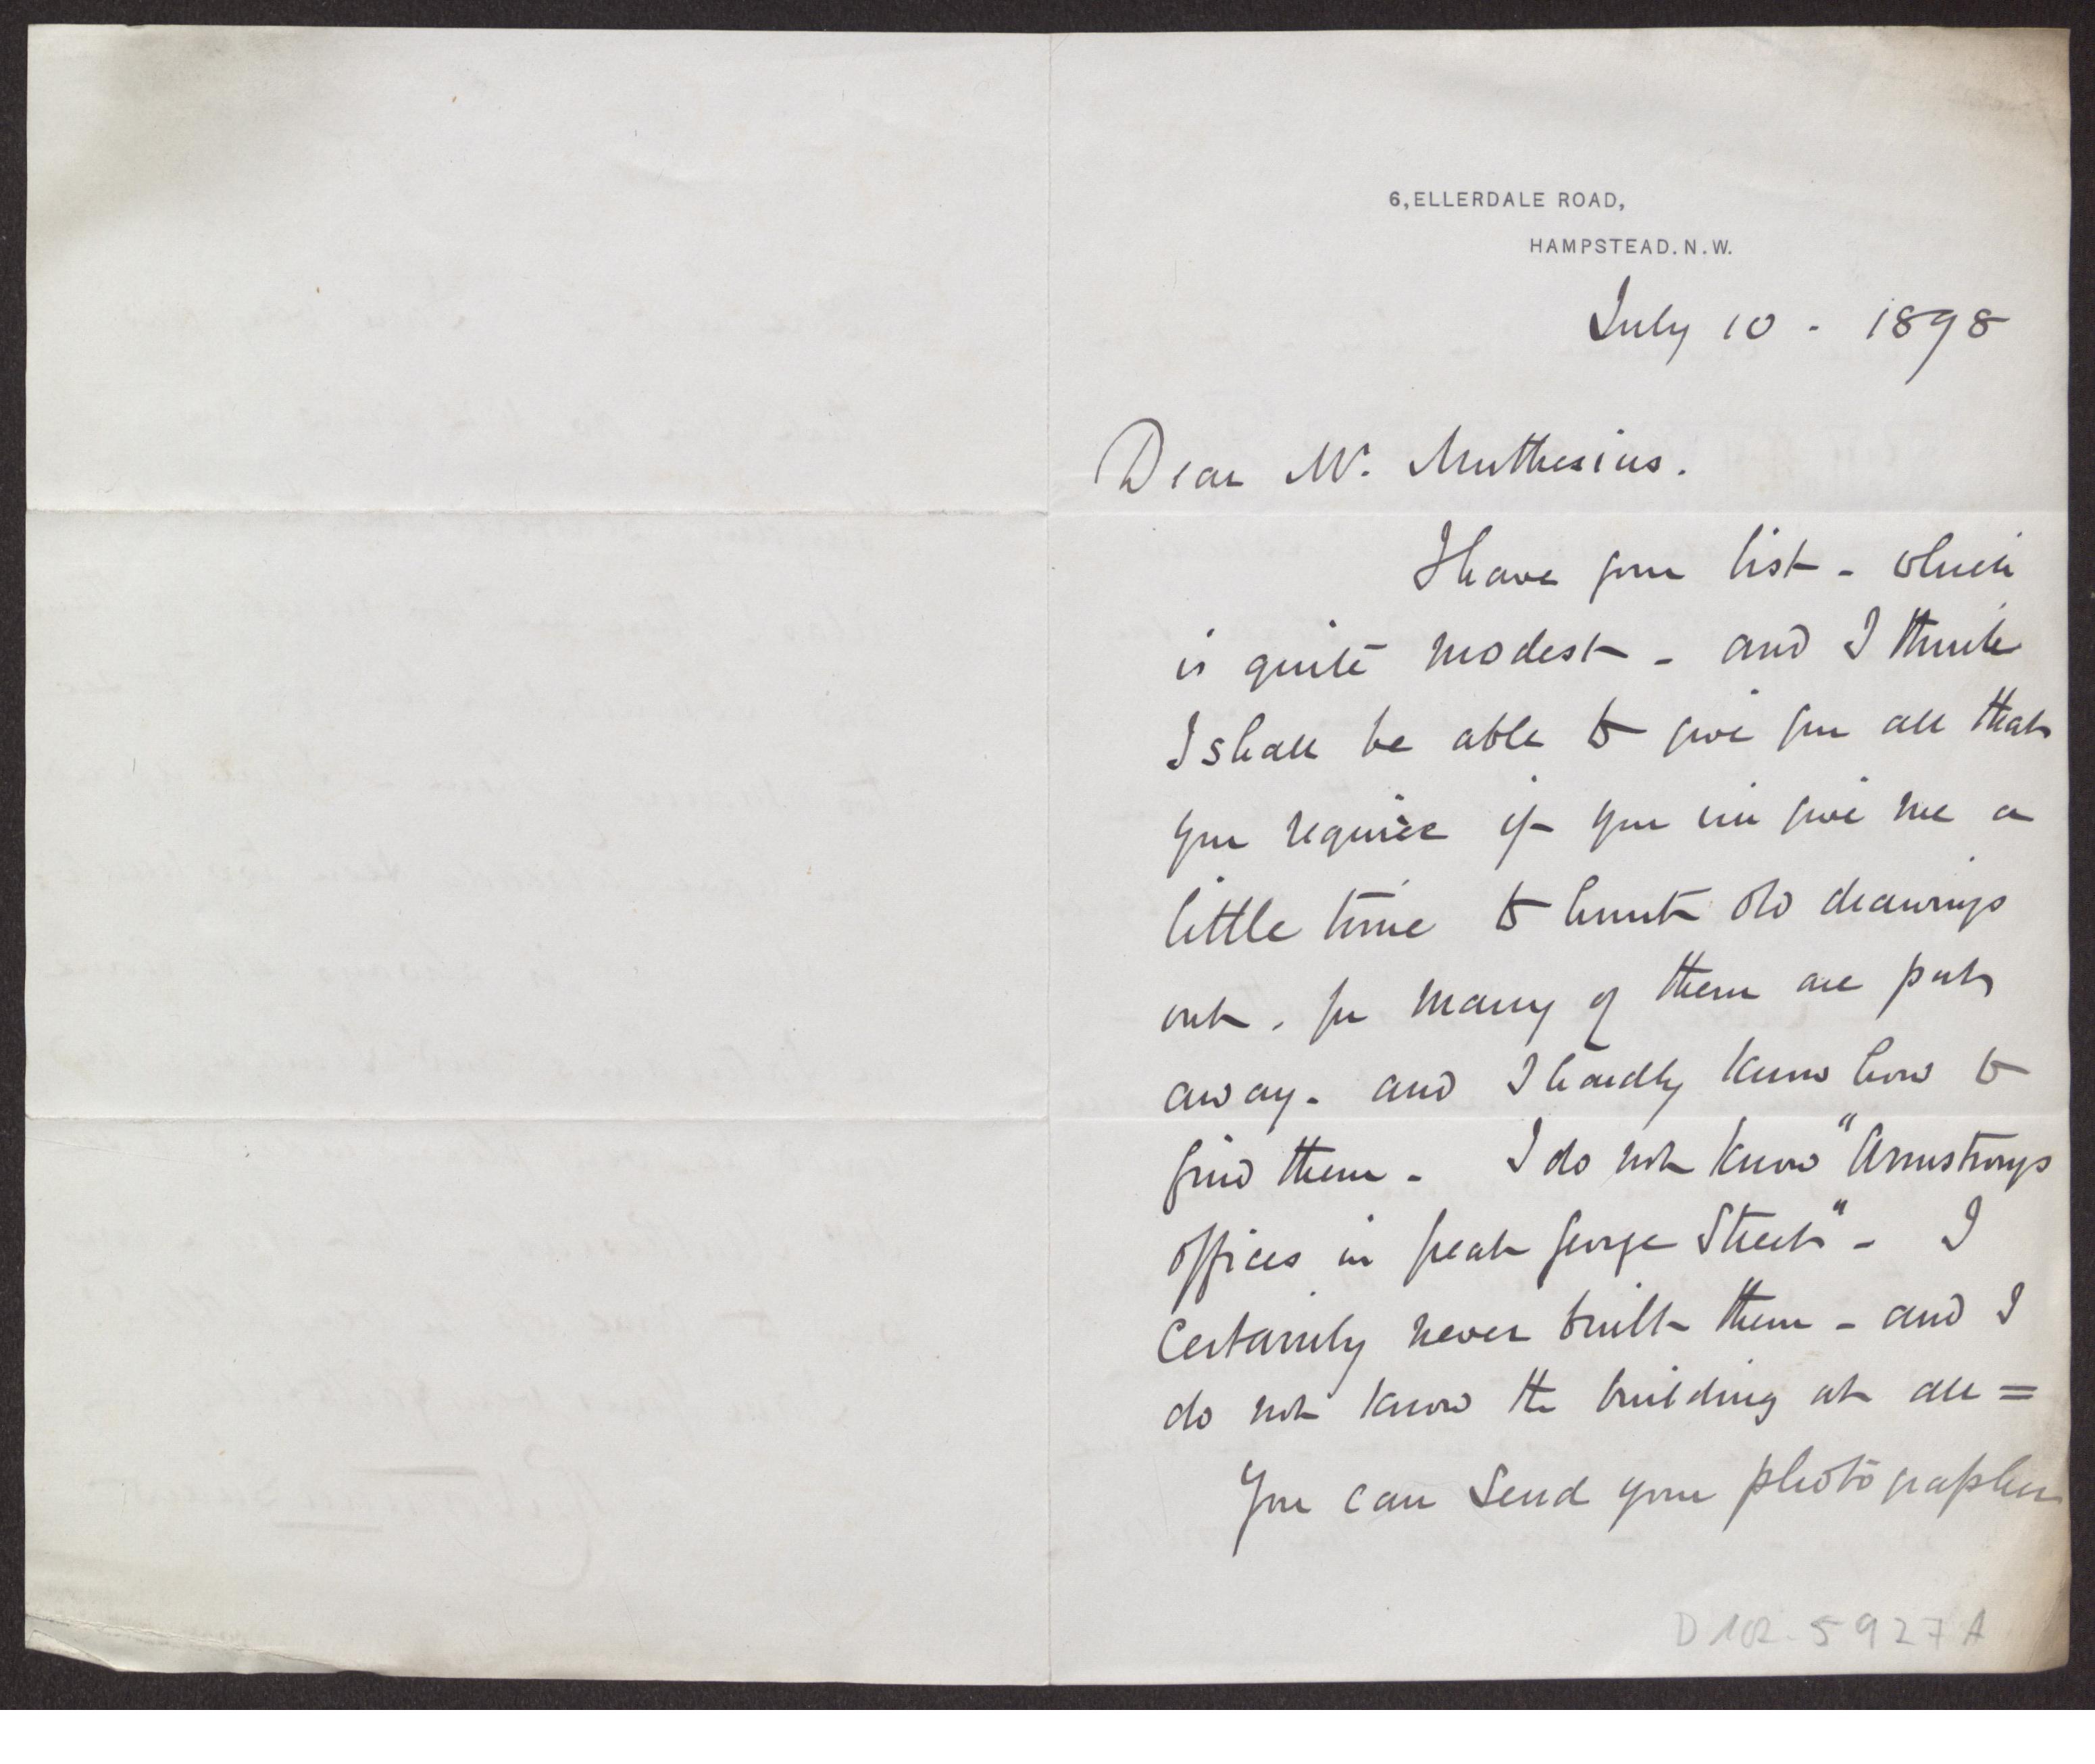 6, ELLERDALE ROAD,
HAMPSTEAD. N. W.
July 10 - 1898
Dear Mr. Muthesius.
I have your list - which
is quite modest - and I think
I shall be able to give you all that
you require if you will give me a
little time to hunt old drawings
out. for many of them are put
away. and I hardly know how to
find them - I do not know "Armstrongs
offices in Great George Street" - I
certainly never built them - and I
do not know the building at all =
You can send your photographer
D 102-5927 A